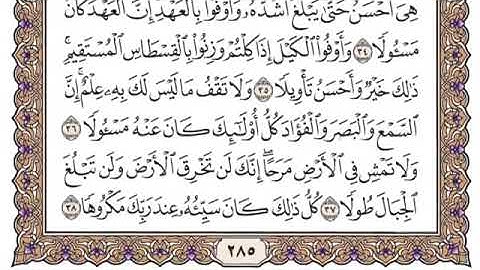 هِىَ أَحْسَنُ حَتَّىٰ يَبْلُغَ أَشُدَّهُۥ وَأَوْفُوا۟ بِٱلْعَهْدِ إِنَّ ٱلْعَهْدَ كَانَ
مَسْـُٔولًا ٣٤ وَأَوْفُوا۟ ٱلْكَيْلَ إِذَا كِلْتُمْ وَزِنُوا۟ بِٱلْقِسْطَاسِ ٱلْمُسْتَقِيمِ
ذَٰلِكَ خَيْرٌ وَأَحْسَنُ تَأْوِيلًا ٣٥ وَلَا تَقْفُ مَا لَيْسَ لَكَ بِهِۦ عِلْمٌ إِنَّ
ٱلسَّمْعَ وَٱلْبَصَرَ وَٱلْفُؤَادَ كُلُّ أُو۟لَـٰٓئِكَ كَانَ عَنْهُ مَسْـُٔولًا ٣٦
وَلَا تَمْشِ فِى ٱلْأَرْضِ مَرَحًا إِنَّكَ لَن تَخْرِقَ ٱلْأَرْضَ وَلَن تَبْلُغَ
ٱلْجِبَالَ طُولًا ٣٧ كُلُّ ذَٰلِكَ كَانَ سَيِّئُهُۥ عِندَ رَبِّكَ مَكْرُوهًا ٣٨
٢٨٥